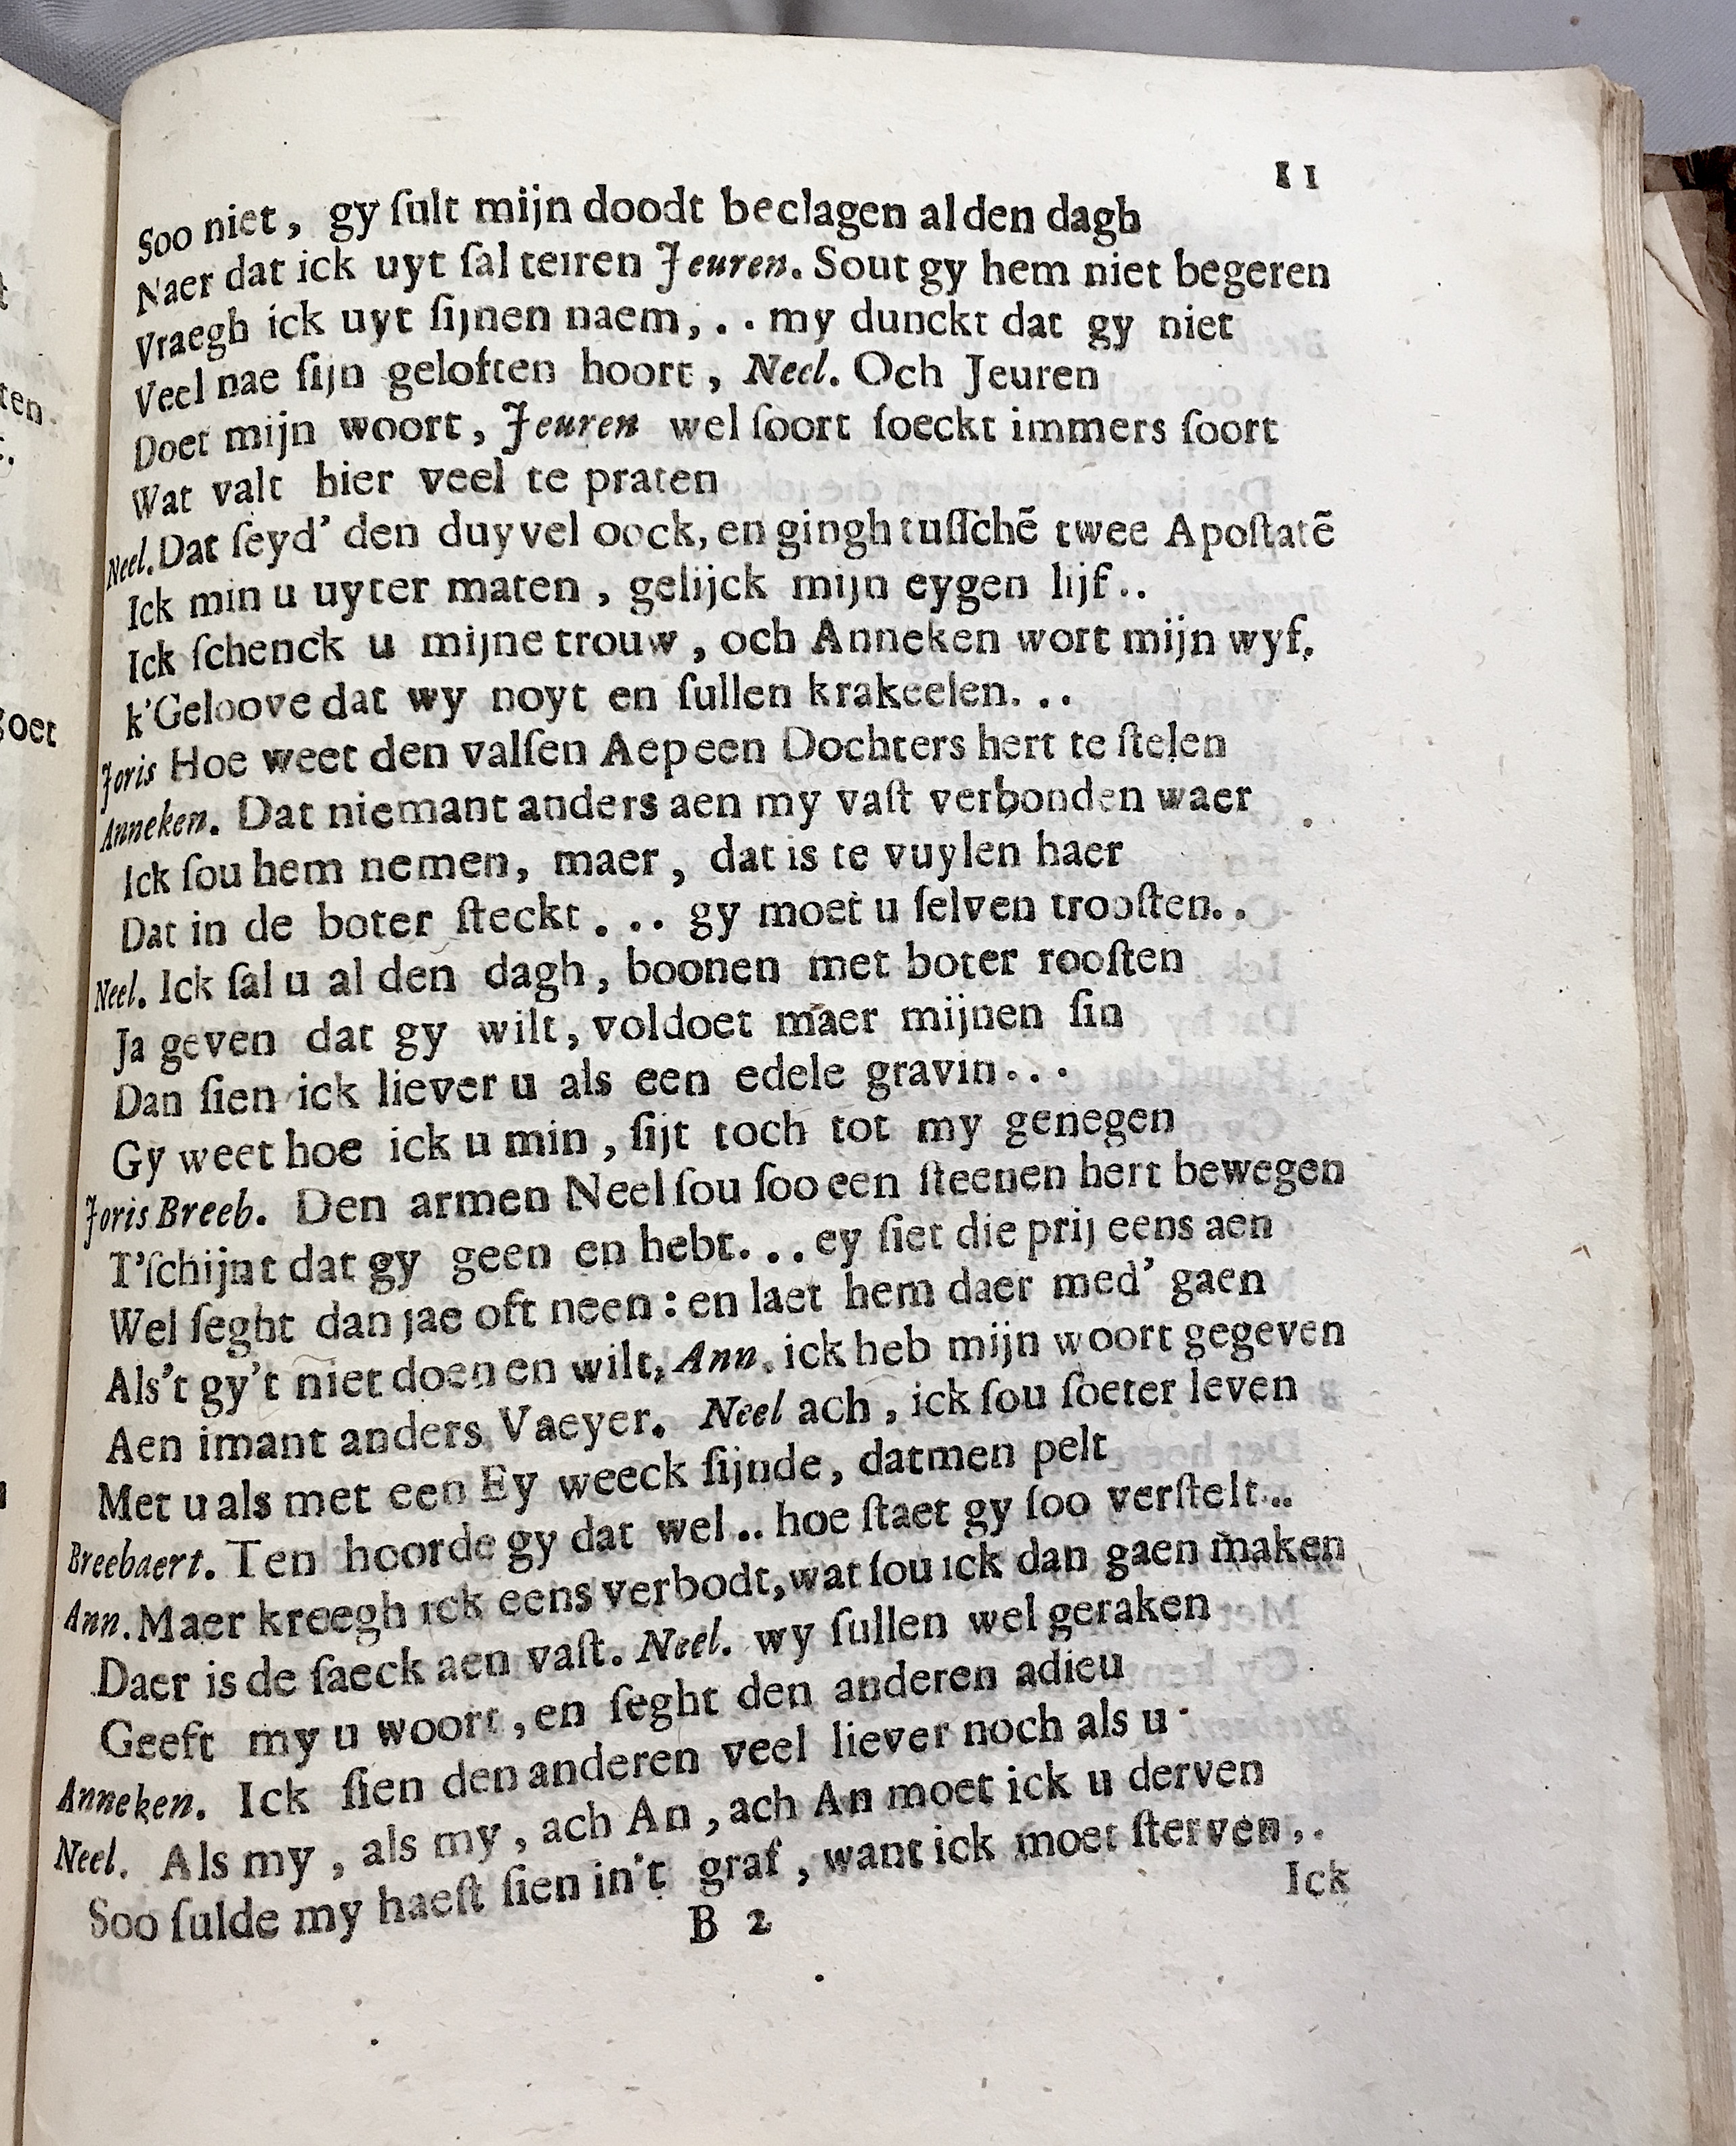 11
Soo niet, gy ſult mijn doodt beclagen al den dagh
Naer dat ick uyt ſal teiren Jeuren. Sout gy hem niet begeren
Vraegh ick uyt ſijnen naem,.. my dunckt dat gy niet
Veel nae ſijn geloften hoort, Neel. Och Jeuren
Doet mijn woort, Jeuren wel ſoort ſoeckt immers ſoort
Wat valt hier veel te praten
Neel. Dat ſeyd' den duyvel oock, en gingh tuſſchē twee Apoſtatē
Ick min u uyter maten, gelijck mijn eygen lijf..
Ick ſchenck u mijne trouw, och Anneken wort mijn wyf.
k'Geloove dat wy noyt en ſullen krakeelen...
Joris Hoe weet den valſen Aep een Dochters hert te ſtelen
Anneken. Dat niemant anders aen my vaſt verbonden waer
Ick ſou hem nemen, maer, dat is te vuylen haer
Dat in de boter ſteckt... gy moet u ſelven trooſten..
Neel. Ick ſal u al den dagh, boonen met boter rooſten
Ja geven dat gy wilt, voldoet maer mijnen ſin
Dan ſien ick liever u als een edele gravin...
Gy weet hoe ick u min, ſijt toch tot my genegen
Joris Breeb. Den armen Neel ſou ſoo een ſteenen hert bewegen
T'ſchijnt dat gy geen en hebt... ey ſiet die prij eens aen
Wel ſeght dan jae oft neen: en laet hem daer med' gaen
Als't gy't niet doen en wilt, Ann. ick heb mijn woort gegeven
Aen imant anders Vaeyer. Neel ach, ick ſou ſoeter leven
Met u als met een Ey weeck ſijnde, datmen pelt
Breebaert. Ten hoorde gy dat wel.. hoe ſtaet gy ſoo verſtelt...
Ann. Maer kreegh ick eens verbodt, wat ſou ick dan gaen maken
Daer is de ſaeck aen vaſt. Neel. wy ſullen wel geraken
Geeft my u woort, en ſeght den anderen adieu
Anneken. Ick ſien den anderen veel liever noch als u
Neel. Als my, als my, ach An, ach An moet ick u derven
Soo ſulde my haeſt ſien in't graf, want ick moet ſterven..
B 2
Ick